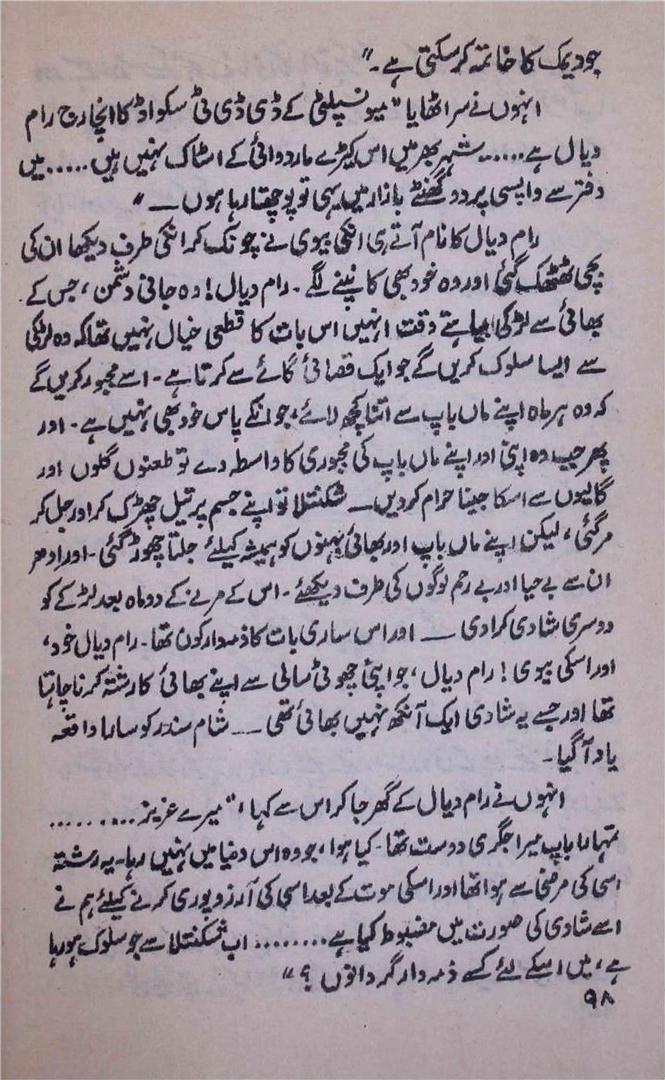 جو دیمک کا خاتمہ کر سکتی ہے۔"
انہوں نے سر اٹھایا "میونسپلٹی کے ڈی ڈی ٹی سکواڈ کا انچارج رام
دیال ہے..... شہر بھر میں اس کیڑے مار دوائی کے اسٹاک نہیں ہیں..... میں
دفتر سے واپسی پر دو گھنٹے بازار میں یہی تو پوچھتا رہا ہوں ــــ"
رام دیال کا نام آتے ہی انکی بیوی نے چونک کر انکی طرف دیکھا ان کی
بچی ٹھٹھک گئی اور وہ خود بھی کانپنے لگے۔ رام دیال! وہ جانی دشمن، جس کے
بھائی سے لڑکی بیاہتے وقت انہیں اس بات کا قطعی خیال نہیں تھا کہ وہ لڑکی
سے ایسا سلوک کریں گے جو ایک قصائی گائے سے کرتا ہے۔ اسے مجبور کریں گے
کہ وہ ہر ماہ اپنے ماں باپ سے اتنا کچھ لائے، جو انکے پاس خود بھی نہیں ہے۔ اور
پھر جب وہ اپنی اور اپنے ماں باپ کی مجبوری کا واسطہ دے تو طعنوں گلوں اور
گالیوں سے اسکا جینا حرام کر دیں ــــ شکنتلا تو اپنے جسم پر تیل چھڑک کر اور جل کر
مر گئی، لیکن اپنے ماں باپ اور بھائی بہنوں کو ہمیشہ کیلئے جلتا چھوڑ گئی۔ اور ادھر
ان سے بے حیا اور بے رحم لوگوں کی طرف دیکھئے۔ اس کے مرنے کے دو ماہ بعد لڑکے کو
دوسری شادی کرا دی ــــ اور اس ساری بات کا ذمہ دار کون تھا۔ رام دیال خود،
اور اسکی بیوی! رام دیال، جو اپنی چھوٹی سالی سے اپنے بھائی کا رشتہ کرنا چاہتا
تھا اور جسے یہ شادی ایک آنکھ نہیں بھائی تھی ــــ شام سندر کو سارا واقعہ
یاد آ گیا۔
انہوں نے رام دیال کے گھر جا کر اس سے کہا، "میرے عزیز.........
تمہارا باپ میرا جگری دوست تھا۔ کیا ہوا، جو وہ اس دنیا میں نہیں رہا۔ یہ رشتہ
اسی کی مرضی سے ہوا تھا اور اسکی موت کے بعد اسی کی آرزو پوری کرنے کیلئے ہم نے
اسے شادی کی صورت میں مضبوط کیا ہے........ اب شکنتلا سے جو سلوک ہو رہا
ہے، میں اسکے لئے کسے ذمہ دار گردانوں؟"
۹۸